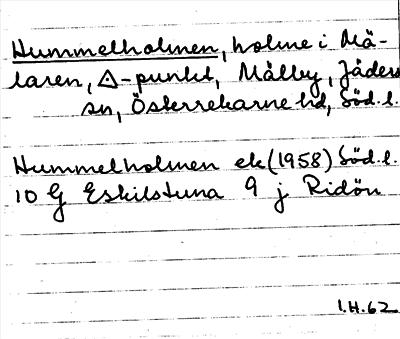 Hummelholmen, holme i Mä-
laren, △-punkt, Mälby, Jäders
sn, Österrekarne hd, Söd. l.
Hummelholmen ek (1958) Söd. l.
10 G Eskilstuna 9 j Ridön
I.H.62